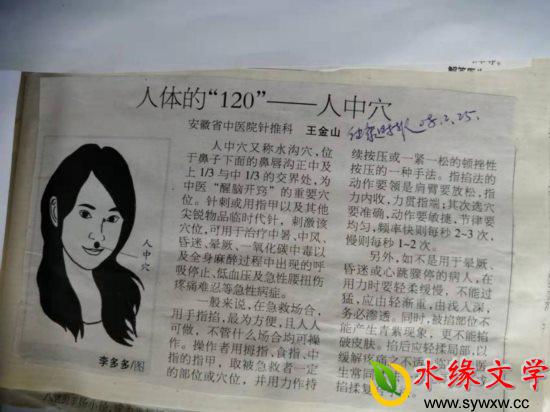 人体的“120”——人中穴
安徽省中医院针推科 王金山
08.2.25.
人中穴又称水沟穴，位
于鼻子下面的鼻唇沟正中及
上 1/3 与中 1/3 的交界处，为
中医“醒脑开窍”的重要穴
位。针刺或用指甲以及其他
尖锐物品临时代针，刺激该
穴位，可用于治疗中暑、中风、
昏迷、晕厥、一氧化碳中毒以
及全身麻醉过程中出现的呼
吸停止、低血压及急性腰扭伤
疼痛难忍等急性病症。
一般来说，在急救场合，
用手指掐，最为方便，且人人
可做，不管什么场合均可操
作。操作者用拇指、食指、中
指的指甲，取被急救者一定
的部位或穴位，并用力作持
续按压或一紧一松的顿挫性
按压的一种手法。指掐法的
动作要领是肩臂要放松，指
力内收，力贯指端；其次选穴
要准确，动作要敏捷，节律要
均匀，频率快则每秒 2~3 次，
慢则每秒 1~2 次。
另外，如不是用于晕厥、
昏迷或心跳骤停的病人，在
用力时要轻柔缓慢，不能过
猛，应由轻渐重，由浅入深，
务必渗透。同时，被掐部位不
能产生青紫现象，更不能掐
破皮肤。掐后应轻揉局部，以
缓解疼痛之不适
生常同
掐揉
人中穴
李多多/图
水缘文学
www.sywxw.cn